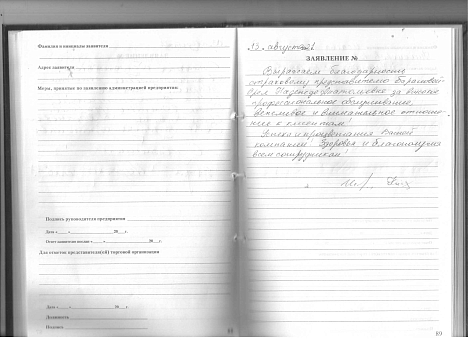 Фамилия и инициалы заявителя
Адрес заявителя
Меры, принятые по заявлению администрацией предприятия:
Подпись руководителя предприятия
Дата « » 20 г.
Ответ заявителю послан « » 20 г.
Для отметок представителя(ей) торговой организации
Дата « » 20 г.
Должность
Подпись
88
13 августа
ЗАЯВЛЕНИЕ №
Выражаем благодарность
страховому представителю
за
профессиональное обслуживание,
вежливое и внимательное отноше-
ние к клиентам!
Успеха и процветания Вашей
компании! Здоровья и благополучия
всем сотрудникам!
89